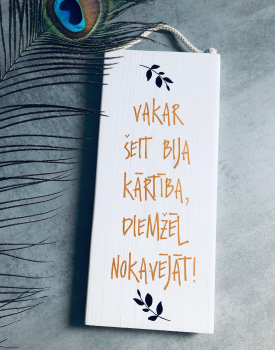 VAKAR
ŠEIT BIJA
KĀRTĪBA,
DIEMŽĒL
NOKAVĒJĀT!